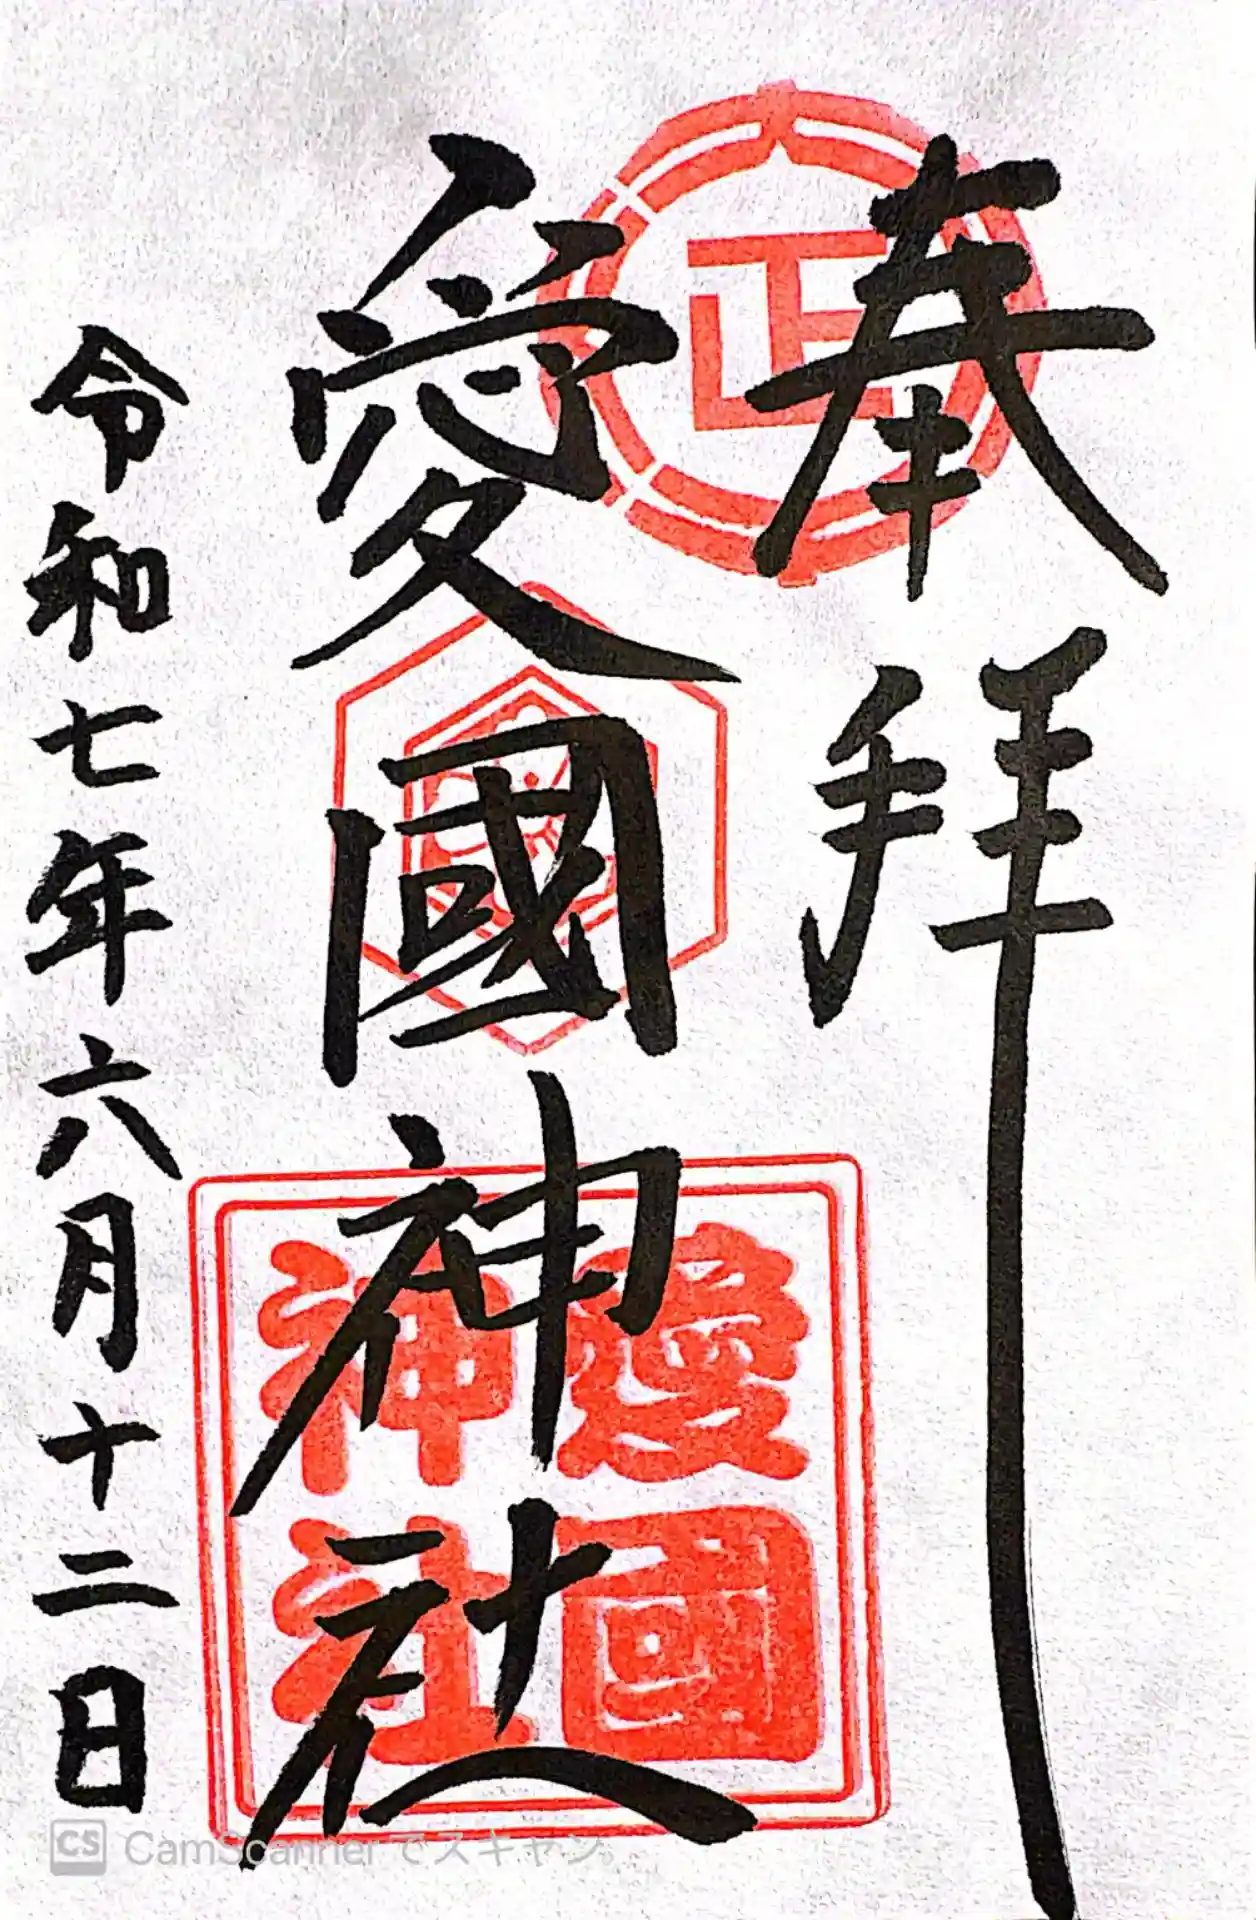 奉拝
正
愛國神社
愛國
神社
令和七年六月十二日
CS CamScannerでスキャン